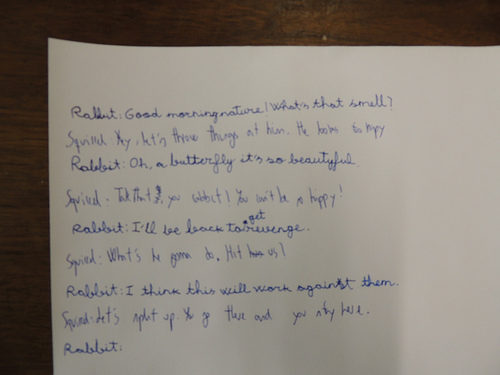 Rabbit: Good morning nature! What's that smell?
Squirrel: Hey, let's throw things at him. He looks to happy
Rabbit: Oh, a butterfly it's so beautyful
Squirrel: Take that, you rabbit! You can't be so happy!
Rabbit: I'll be back to get revenge.
Squirrel: What's he gonna do. Hit us!
Rabbit: I think this will work against them.
Squirrel: Let's split up. You go there and you stay here.
Rabbit: